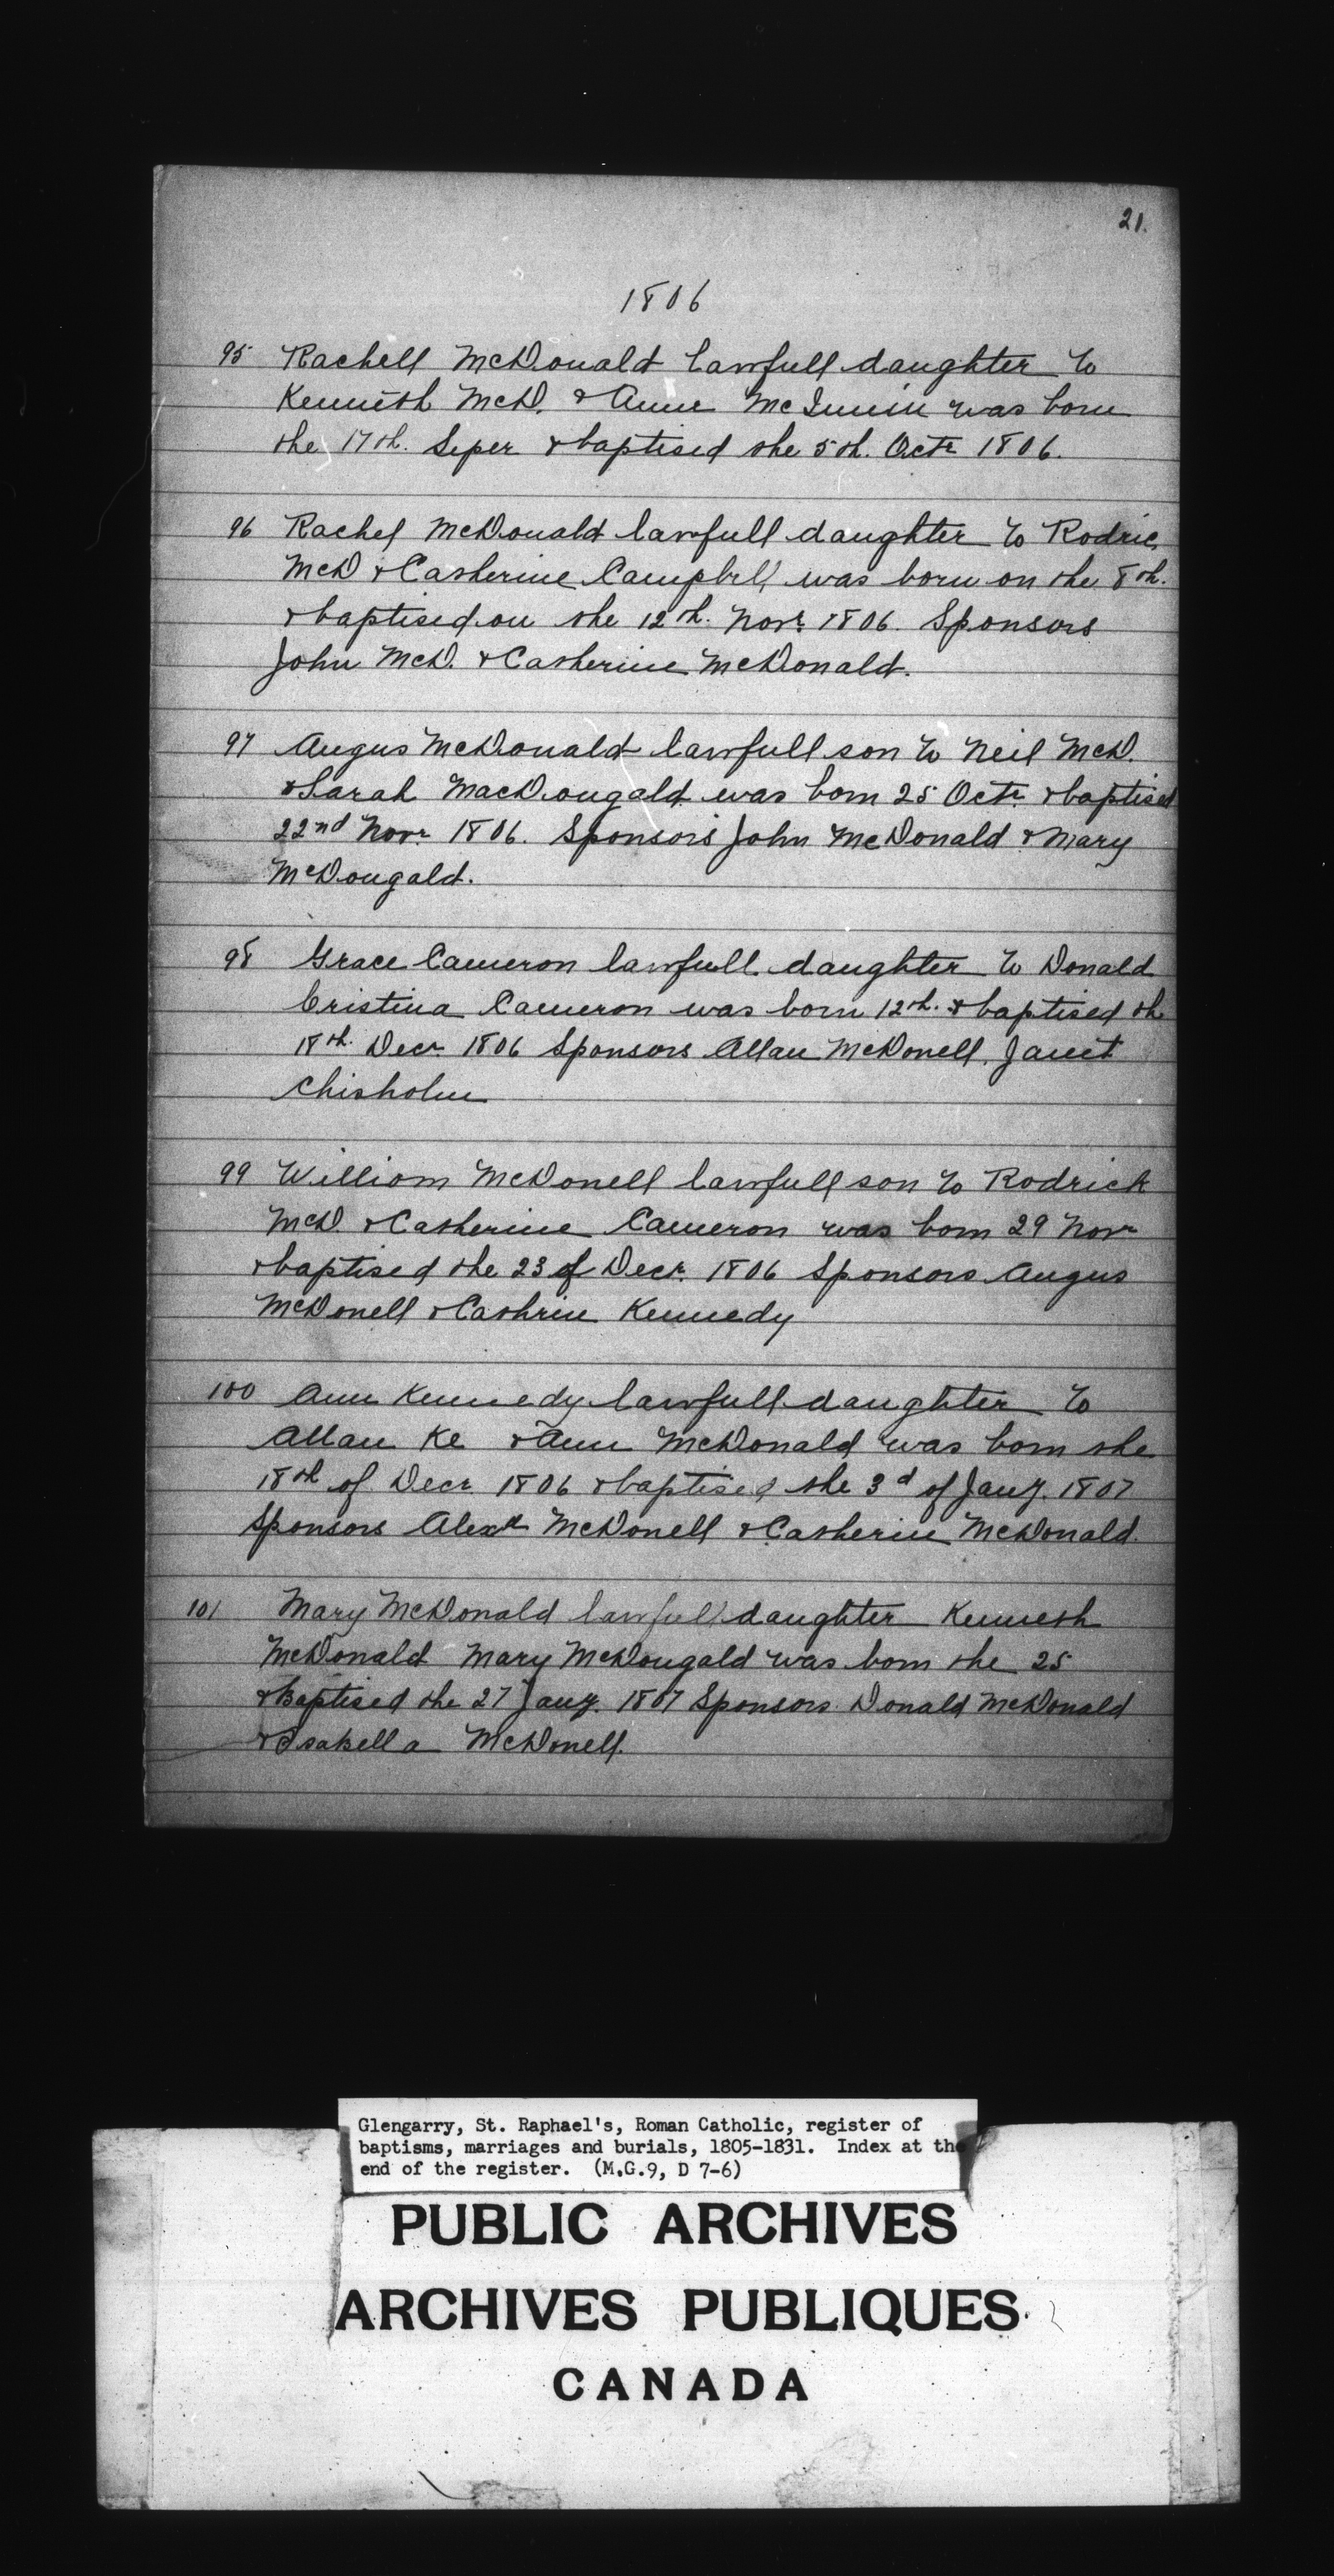 21.
1806
95 Rachell McDonald lawfull daughter to
Kenneth McD. & Anne was born
the 17th. Seper & baptised the 5th. Octr 1806.
96 Rachel McDonald lawfull daughter to Rodric
McD & Catherine Campbell was born on the 8th.
& baptised on the 12th. Novr. 1806. Sponsors
John McD. & Catherine McDonald.
97 Angus McDonald lawfull son to Neil McD.
& Sarah MacDougald was born 25 Octr. & baptised
22nd Novr. 1806. Sponsors John McDonald & Mary
McDougald.
98 Grace Cameron lawfull daughter to Donald
Cristina Cameron was born 12th. & baptised th
18th. Decr. 1806 Sponsors Allan McDonell, Janet
Chisholm
99 William McDonell lawfull son to Rodrick
McD & Catherine Cameron was born 29 Novr
& baptised the 23 of Decr. 1806 Sponsors Angus
McDonell & Cathrin Kennedy
100 Ann Kennedy lawfull daughter to
Allan Ke & Ann McDonald was born the
18th of Decr 1806 & baptised the 3d of Jany. 1807
Sponsors Alexr McDonell & Catherin McDonald.
101 Mary McDonald lawfull daughter Kenneth
McDonald Mary McDougald was born the 25
& Baptised the 27 Jany. 1807 Sponsors Donald McDonald
& Isabella McDonell.
Glengarry, St. Raphael's, Roman Catholic, register of
baptisms, marriages and burials, 1805-1831. Index at the
end of the register. (M.G.9, D 7-6)
PUBLIC ARCHIVES
ARCHIVES PUBLIQUES
CANADA